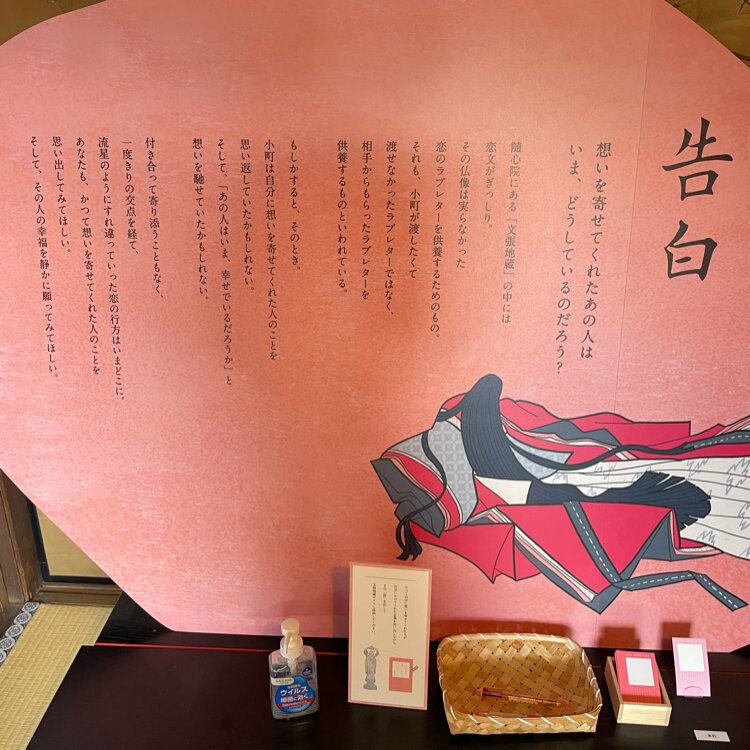 告白
想いを寄せてくれたあの人は
いま、どうしているのだろう?
随心院にある「文張地蔵」の中には
恋文がぎっしり。
その仏像は実らなかった
恋のラブレターを供養するためのもの。
それも、小町が渡したくて
渡せなかったラブレターではなく、
相手からもらったラブレターを
供養するものといわれている。
もしかすると、そのとき。
小町は自分に想いを寄せてくれた人のことを
思い返していたかもしれない。
そして、「あの人はいま、幸せでいるだろうか」と
想いを馳せていたかもしれない。
付き合って寄り添うこともなく、
一度きりの交点を経て、
流星のようにすれ違っていった恋の行方はいまどこに。
あなたも、かつて想いを寄せてくれた人のことを
思い出してみてほしい。
そして、その人の幸福を静かに願ってみてほしい。
ウイルス
細菌に効く